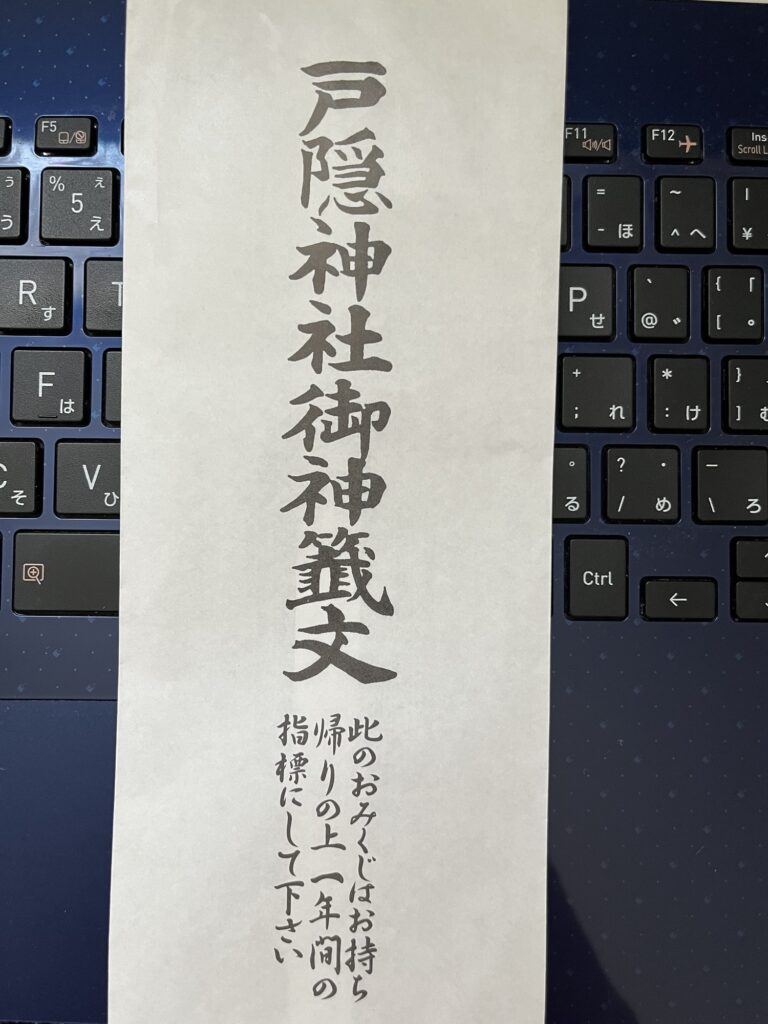 戸隠神社御神籤文
此のおみくじはお持ち
帰りの上一年間の
指標にして下さい
F5
F11
F12
Ins
ぅ
%
え
=
~
|
う
5
え
-
ほ
^
へ
¥
R
す
T
P
せ
`
@
゛
{
「
[
゜
F
は
+
;
れ
*
:
け
}
]
む
C
そ
V
ひ
。
る
?
・
/
め
_
\
ろ
Ctrl
←